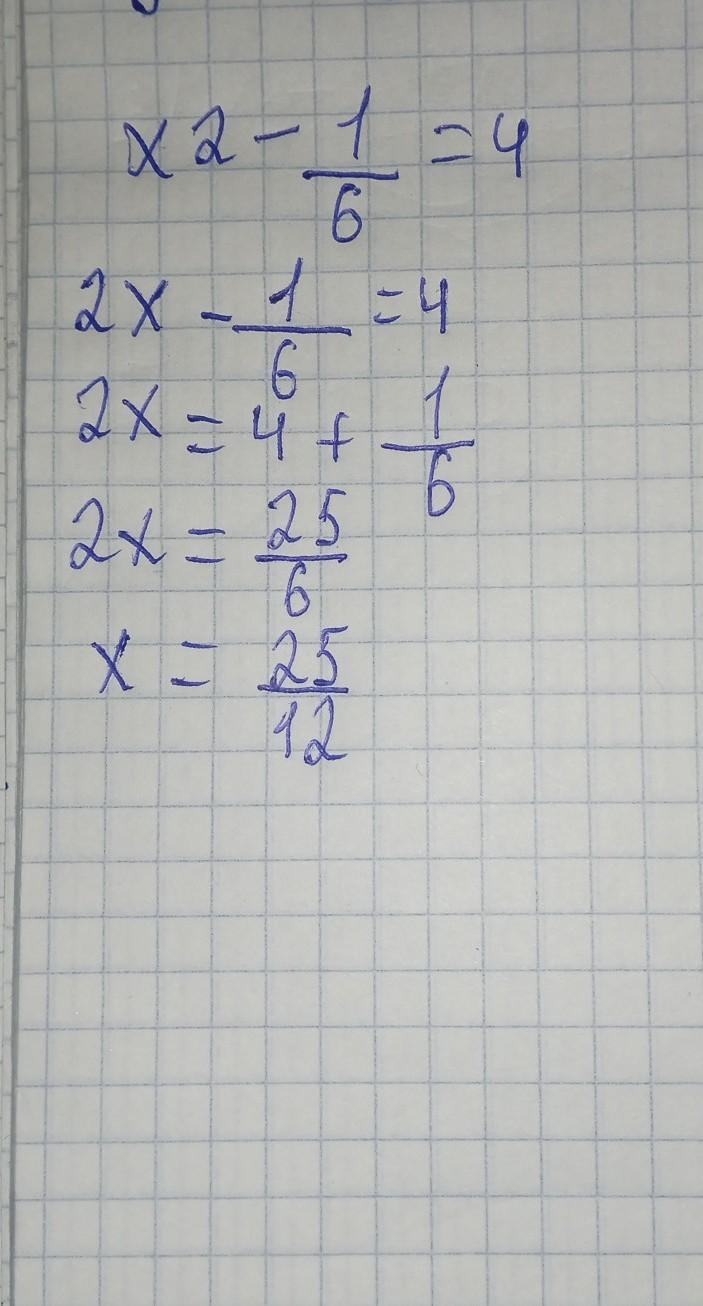 x2 - 1/6 = 4
2x - 1/6 = 4
2x = 4 + 1/6
2x = 25/6
x = 25/12